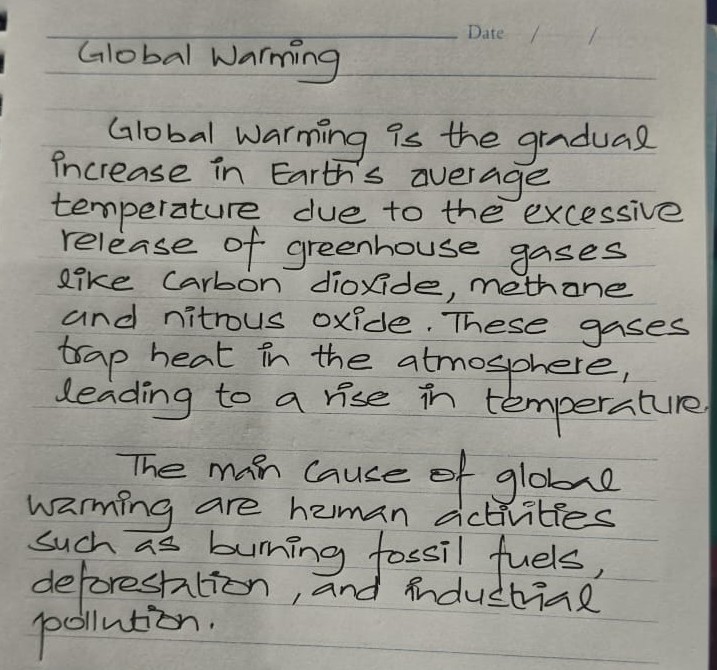 Date / /
Global Warming
Global Warming is the gradual
increase in Earth's average
temperature due to the excessive
release of greenhouse gases
like Carbon dioxide, methane
and nitrous oxide. These gases
trap heat in the atmosphere,
leading to a rise in temperature.
The main cause of global
warming are human activities
such as burning fossil fuels,
deforestation, and industrial
pollution.